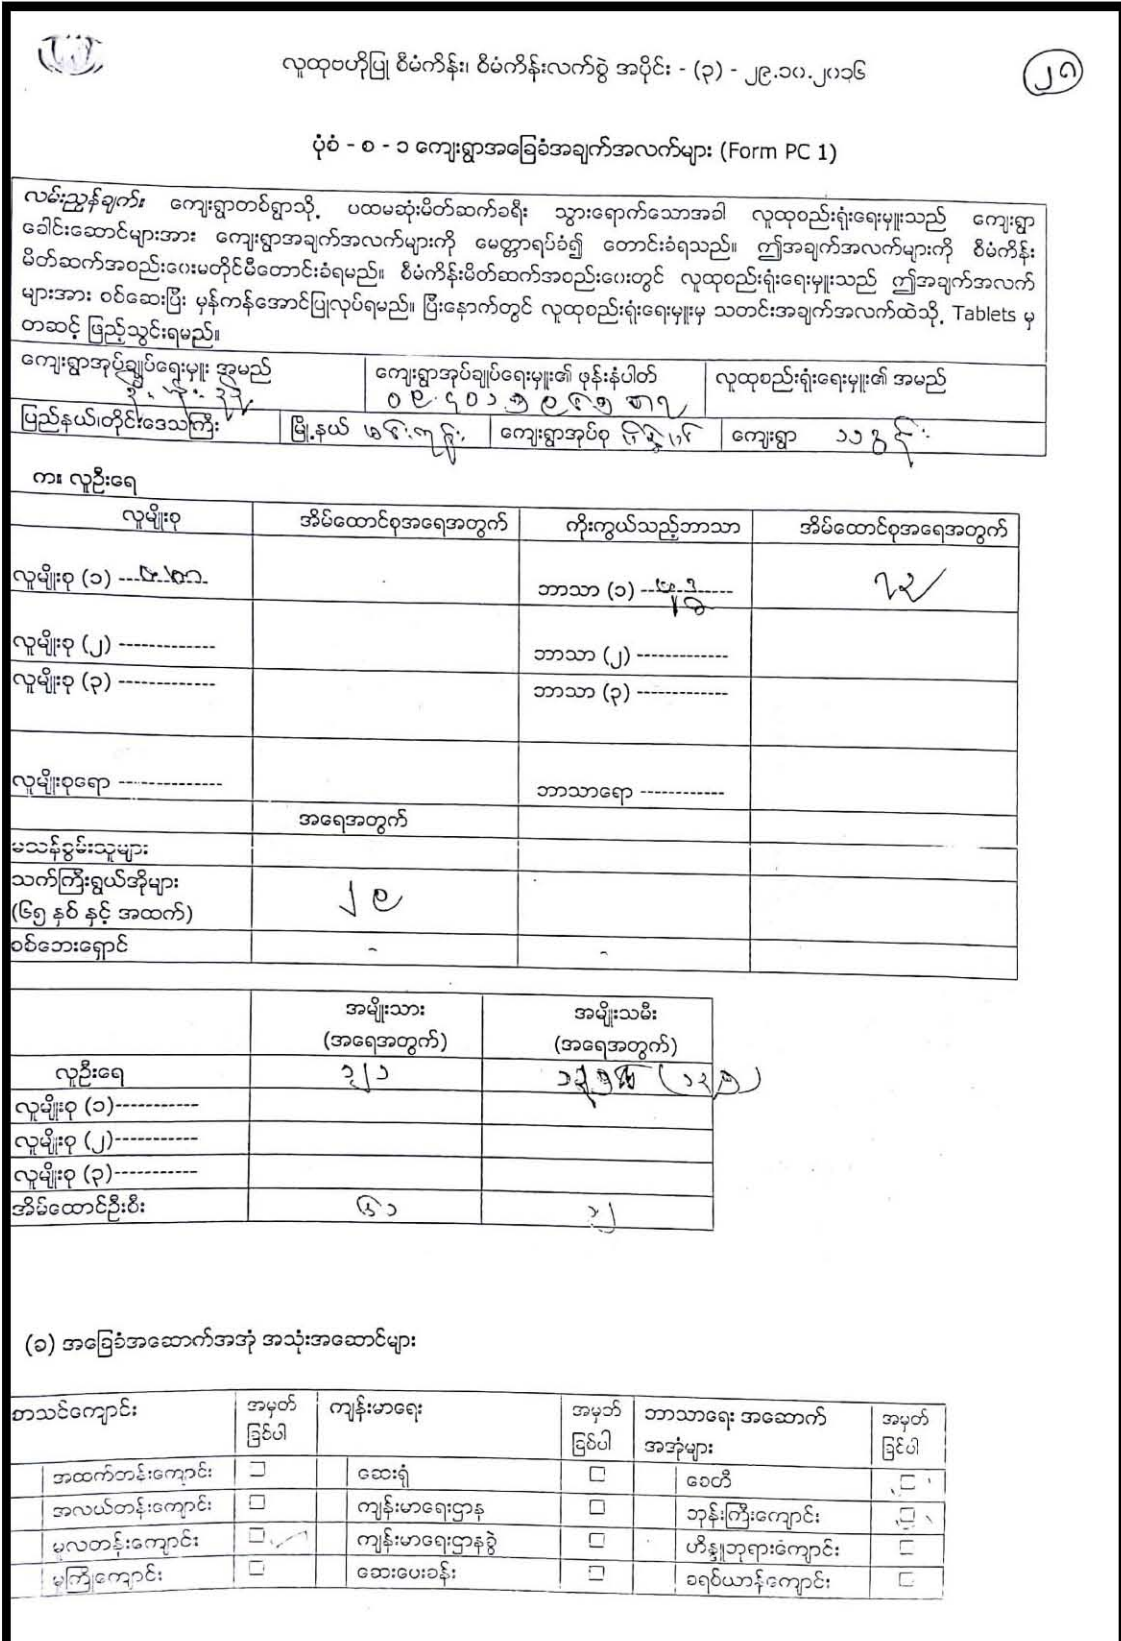 လူထုဗဟိုပြု စီမံကိန်း၊ စီမံကိန်းလက်စွဲ အပိုင်း - (၃) - ၂၉.၁၀.၂၀၁၆
ပုံစံ - စ - ၁ ကျေးရွာအခြေခံအချက်အလက်များ (Form PC 1)
လမ်းညွှန်ချက်။ ကျေးရွာတစ်ရွာသို့ ပထမဆုံးမိတ်ဆက်ခရီး သွားရောက်သောအခါ လူထုစည်းရုံးရေးမှူးသည် ကျေးရွာ
ခေါင်းဆောင်များအား ကျေးရွာအချက်အလက်များကို မေတ္တာရပ်ခံ၍ တောင်းခံရသည်။ ဤအချက်အလက်များကို စီမံကိန်း
မိတ်ဆက်အစည်းဝေးမတိုင်မီတောင်းခံရမည်။ စီမံကိန်းမိတ်ဆက်အစည်းဝေးတွင် လူထုစည်းရုံးရေးမှူးသည် ဤအချက်အလက်
များအား စစ်ဆေးပြီး မှန်ကန်အောင်ပြုလုပ်ရမည်။ ပြီးနောက်တွင် လူထုစည်းရုံးရေးမှူးမှ သတင်းအချက်အလက်ထဲသို့ Tablets မှ
တဆင့် ဖြည့်သွင်းရမည်။
ကျေးရွာအုပ်ချုပ်ရေးမှူး အမည် ကျေးရွာအုပ်ချုပ်ရေးမှူး၏ ဖုန်းနံပါတ် လူထုစည်းရုံးရေးမှူး၏ အမည်
ပြည်နယ်၊တိုင်းဒေသကြီး မြို့နယ် ကျေးရွာအုပ်စု ကျေးရွာ
က။ လူဦးရေ
လူမျိုးစု အိမ်ထောင်စုအရေအတွက် ကိုးကွယ်သည့်ဘာသာ အိမ်ထောင်စုအရေအတွက်
လူမျိုးစု (၁) ဘာသာ (၁) ၇၃
လူမျိုးစု (၂) ------------- ဘာသာ (၂) -------------
လူမျိုးစု (၃) ------------- ဘာသာ (၃) -------------
လူမျိုးစုရော -------------- ဘာသာရော ------------
အရေအတွက်
မသန်စွမ်းသူများ
သက်ကြီးရွယ်အိုများ
(၆၅ နှစ် နှင့် အထက်) ၂၉
စစ်ဘေးရှောင် - -
အမျိုးသား အမျိုးသမီး
(အရေအတွက်) (အရေအတွက်)
လူဦးရေ ၁၂၁ (၁၃၅)
လူမျိုးစု (၁)-----------
လူမျိုးစု (၂)-----------
လူမျိုးစု (၃)-----------
အိမ်ထောင်ဦးစီး ၆၁ ၁၂
(ခ) အခြေခံအဆောက်အအုံ အသုံးအဆောင်များ
စာသင်ကျောင်း အမှတ် ကျန်းမာရေး အမှတ် ဘာသာရေး အဆောက် အမှတ်
ခြစ်ပါ ခြစ်ပါ အအုံများ ခြစ်ပါ
အထက်တန်းကျောင်း ☐ ဆေးရုံ ☐ စေတီ ☐
အလယ်တန်းကျောင်း ☐ ကျန်းမာရေးဌာန ☐ ဘုန်းကြီးကျောင်း ☐
မူလတန်းကျောင်း ☐ ကျန်းမာရေးဌာနခွဲ ☐ ဟိန္ဒူဘုရားကျောင်း ☐
မူကြိုကျောင်း ☐ ဆေးပေးခန်း ☐ ခရစ်ယာန်ကျောင်း ☐